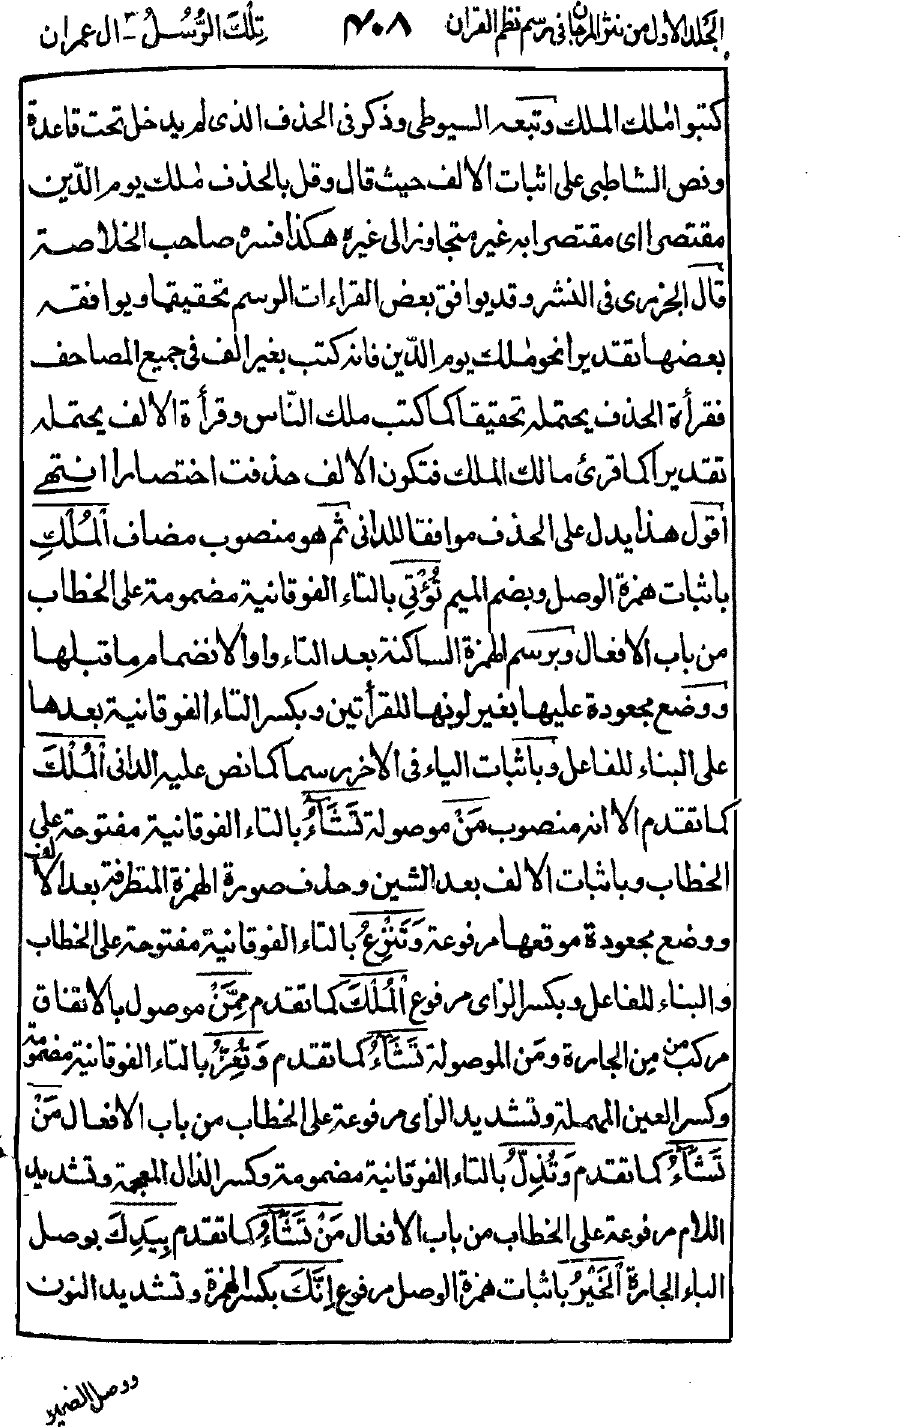 الجلد الاول من نثر المرجان في رسم نظم القران ۴۰۸ تِلْكَ الرُّسُلُ ۳ - ال عمران
كتبوا مٰلك الملك وتبعه السيوطي وذكر في الحذف الذي لم يدخل تحت قاعدة
ونص الشاطبي على اثبات الالف حيث قال وقل بالحذف مٰلك يوم الدّين
مقتصرا اى مقتصرا به غير متجاوز الى غيره هكذا فسره صاحب الخلاصة
قال الجزري في النشر وقد يوافق بعض القراءات الرسم تحقيقا ويوافقه
بعضها تقديرا نحو مٰلك يوم الدّين فانه كتب بغير الف في جميع المصاحف
فقرأة الحذف يحتمله تحقيقا كما كتب ملك النّاس وقرأة الالف يحتمله
تقديرا كما قرئ مالك الملك فتكون الالف حذفت اختصارا انتهى
اقول هذا يدل على الحذف موافقا للداني ثم هو منصوب مضاف الْمُلْكِ
باثبات همزة الوصل وبضم الميم تُؤْتِي بالتاء الفوقانية مضمومة على الخطاب
من باب الافعال وبرسم الهمزة الساكنة بعد التاء واوا لانضمام ما قبلها
ووضع مجعودة عليها بغير لونها للقرأتين وبكسر التاء الفوقانية بعدها
على البناء للفاعل وباثبات الياء في الاخر رسما كما نص عليه الداني الْمُلْكَ
كما تقدم الا انه منصوب مَنْ موصولة تَشَآءُ بالتاء الفوقانية مفتوحة على
الخطاب وباثبات الالف بعد الشين وحذف صورة الهمزة المتطرفة بعد الالف
ووضع مجعودة موقعها مرفوعة وَتَنْزِعُ بالتاء الفوقانية مفتوحة على الخطاب
والبناء للفاعل وبكسر الزاى مرفوع الْمُلْكَ كما تقدم مِمَّنْ موصول بالاتفاق
مركب من مِن الجارة ومَن الموصولة تَشَآءُ كما تقدم وَتُعِزُّ بالتاء الفوقانية مضمومة
وكسر العين المهملة وتشديد الزاى مرفوعة على الخطاب من باب الافعال مَنْ
تَشَآءُ كما تقدم وَتُذِلُّ بالتاء الفوقانية مضمومة وكسر الذال المعجمة وتشديد
اللام مرفوعة على الخطاب من باب الافعال مَنْ تَشَآءُ كما تقدم بِيَدِكَ بوصل
الباء الجارة الْخَيْرُ باثبات همزة الوصل مرفوع إِنَّكَ بكسر الهمزة وتشديد النون
ووصل الضمير